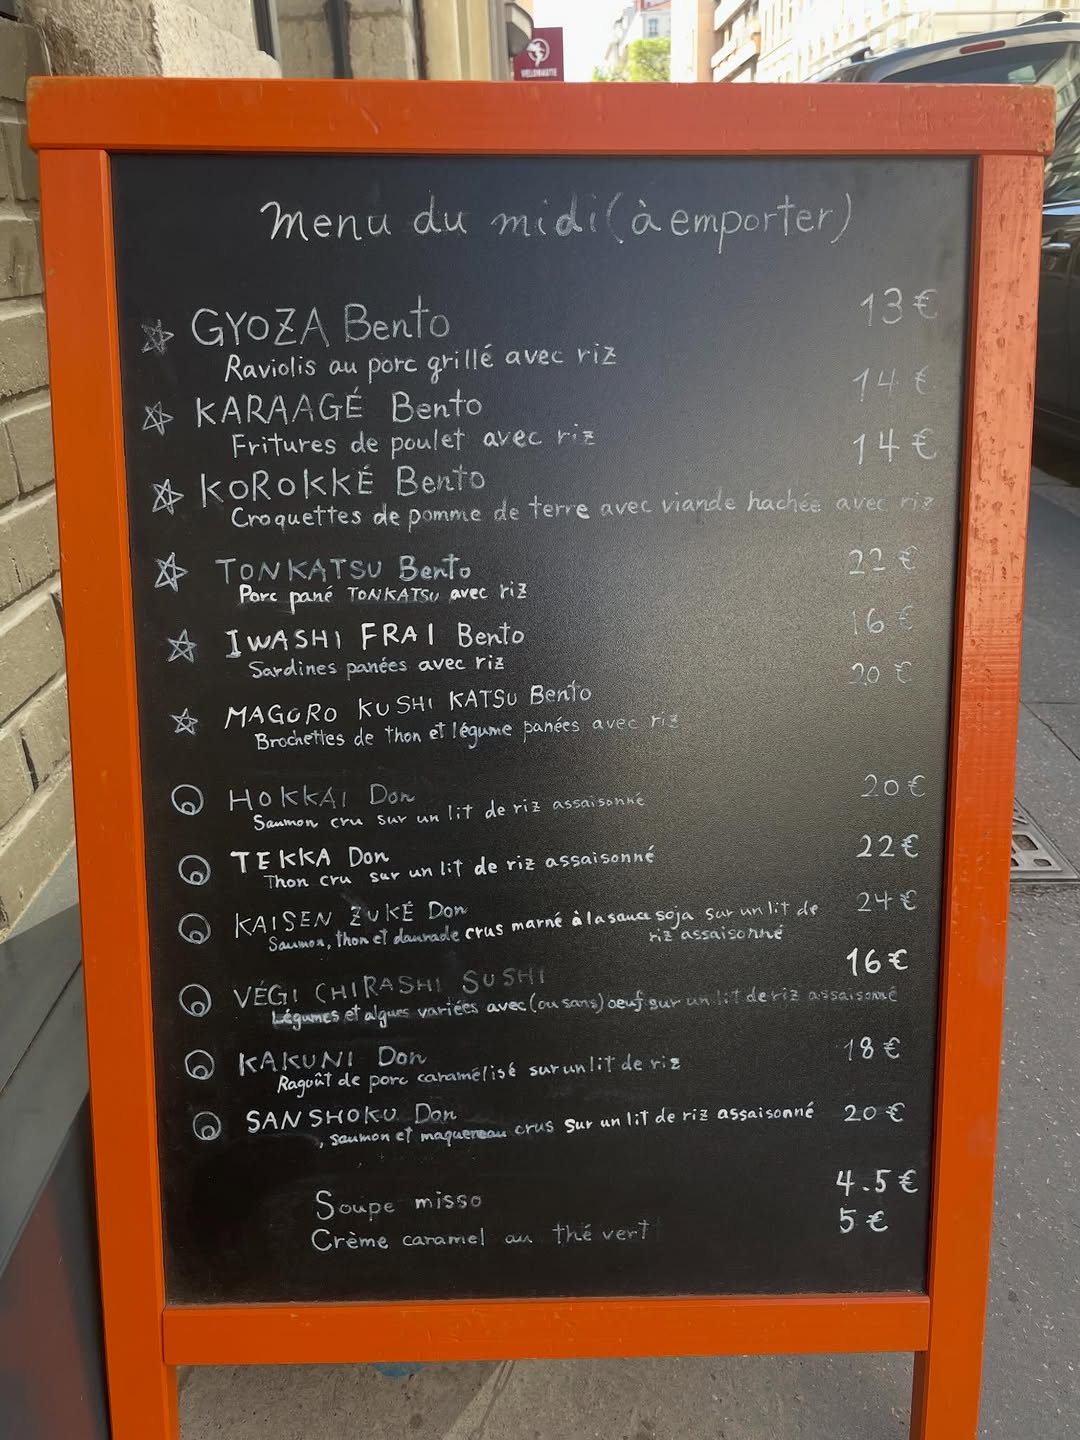 menu du midi (à emporter)
GYOZA Bento 13€
Raviolis au porc grillé avec riz
KARAAGÉ Bento 14€
Fritures de poulet avec riz
KOROKKÉ Bento 14€
Croquettes de pomme de terre avec viande hachée avec riz
TONKATSU Bento 22€
Porc pané TONKATSU avec riz
IWASHI FRAI Bento 16€
Sardines panées avec riz
MAGURO KUSHI KATSU Bento 20€
Brochettes de thon et légume panées avec riz
HOKKAI Don 20€
Saumon cru sur un lit de riz assaisonné
TEKKA Don 22€
Thon cru sur un lit de riz assaisonné
KAISEN ZUKÉ Don 24€
Saumon, thon et daurade crus marné à la sauce soja sur un lit de
riz assaisonné
VÉGI CHIRASHI SUSHI 16€
Légumes et algues variées avec (ou sans) oeuf sur un lit de riz assaisonné
KAKUNI Don 18€
Ragoût de porc caramélisé sur un lit de riz
SANSHOKU Don 20€
, saumon et maquereau crus sur un lit de riz assaisonné
Soupe misso 4.5€
Crème caramel au thé vert 5€